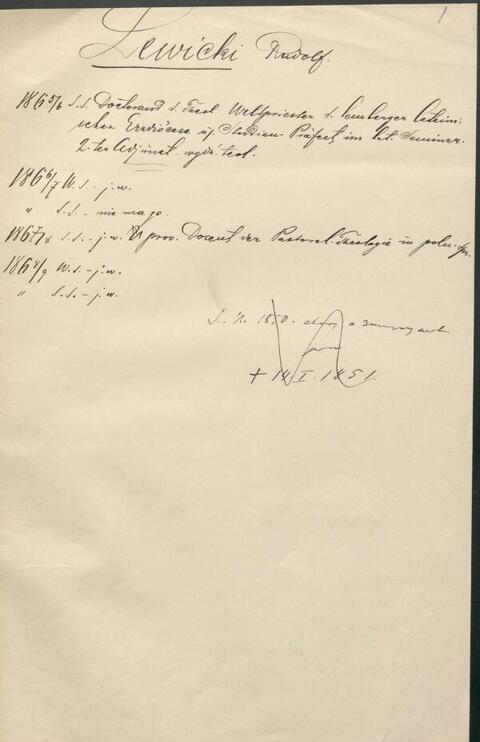 1
Lewicki Rudolf.
1865/6 S.S. Doctorand d. Theol. Weltpriester d. Lemberger latein-
ischen Erzdiöcese u. Studien-Präfect im lat. Seminar.
2-ter Adjunct wydz. teol.
1866/7 W.S. - j.w.
" S.S. - nie ma go.
1867/8 S.S. - j.w. prov. Docent der Pastoral-Theologie in poln. Spr.
1868/9 W.S. - j.w.
" S.S. - j.w.
1850. o
+ 14. I. 1851.